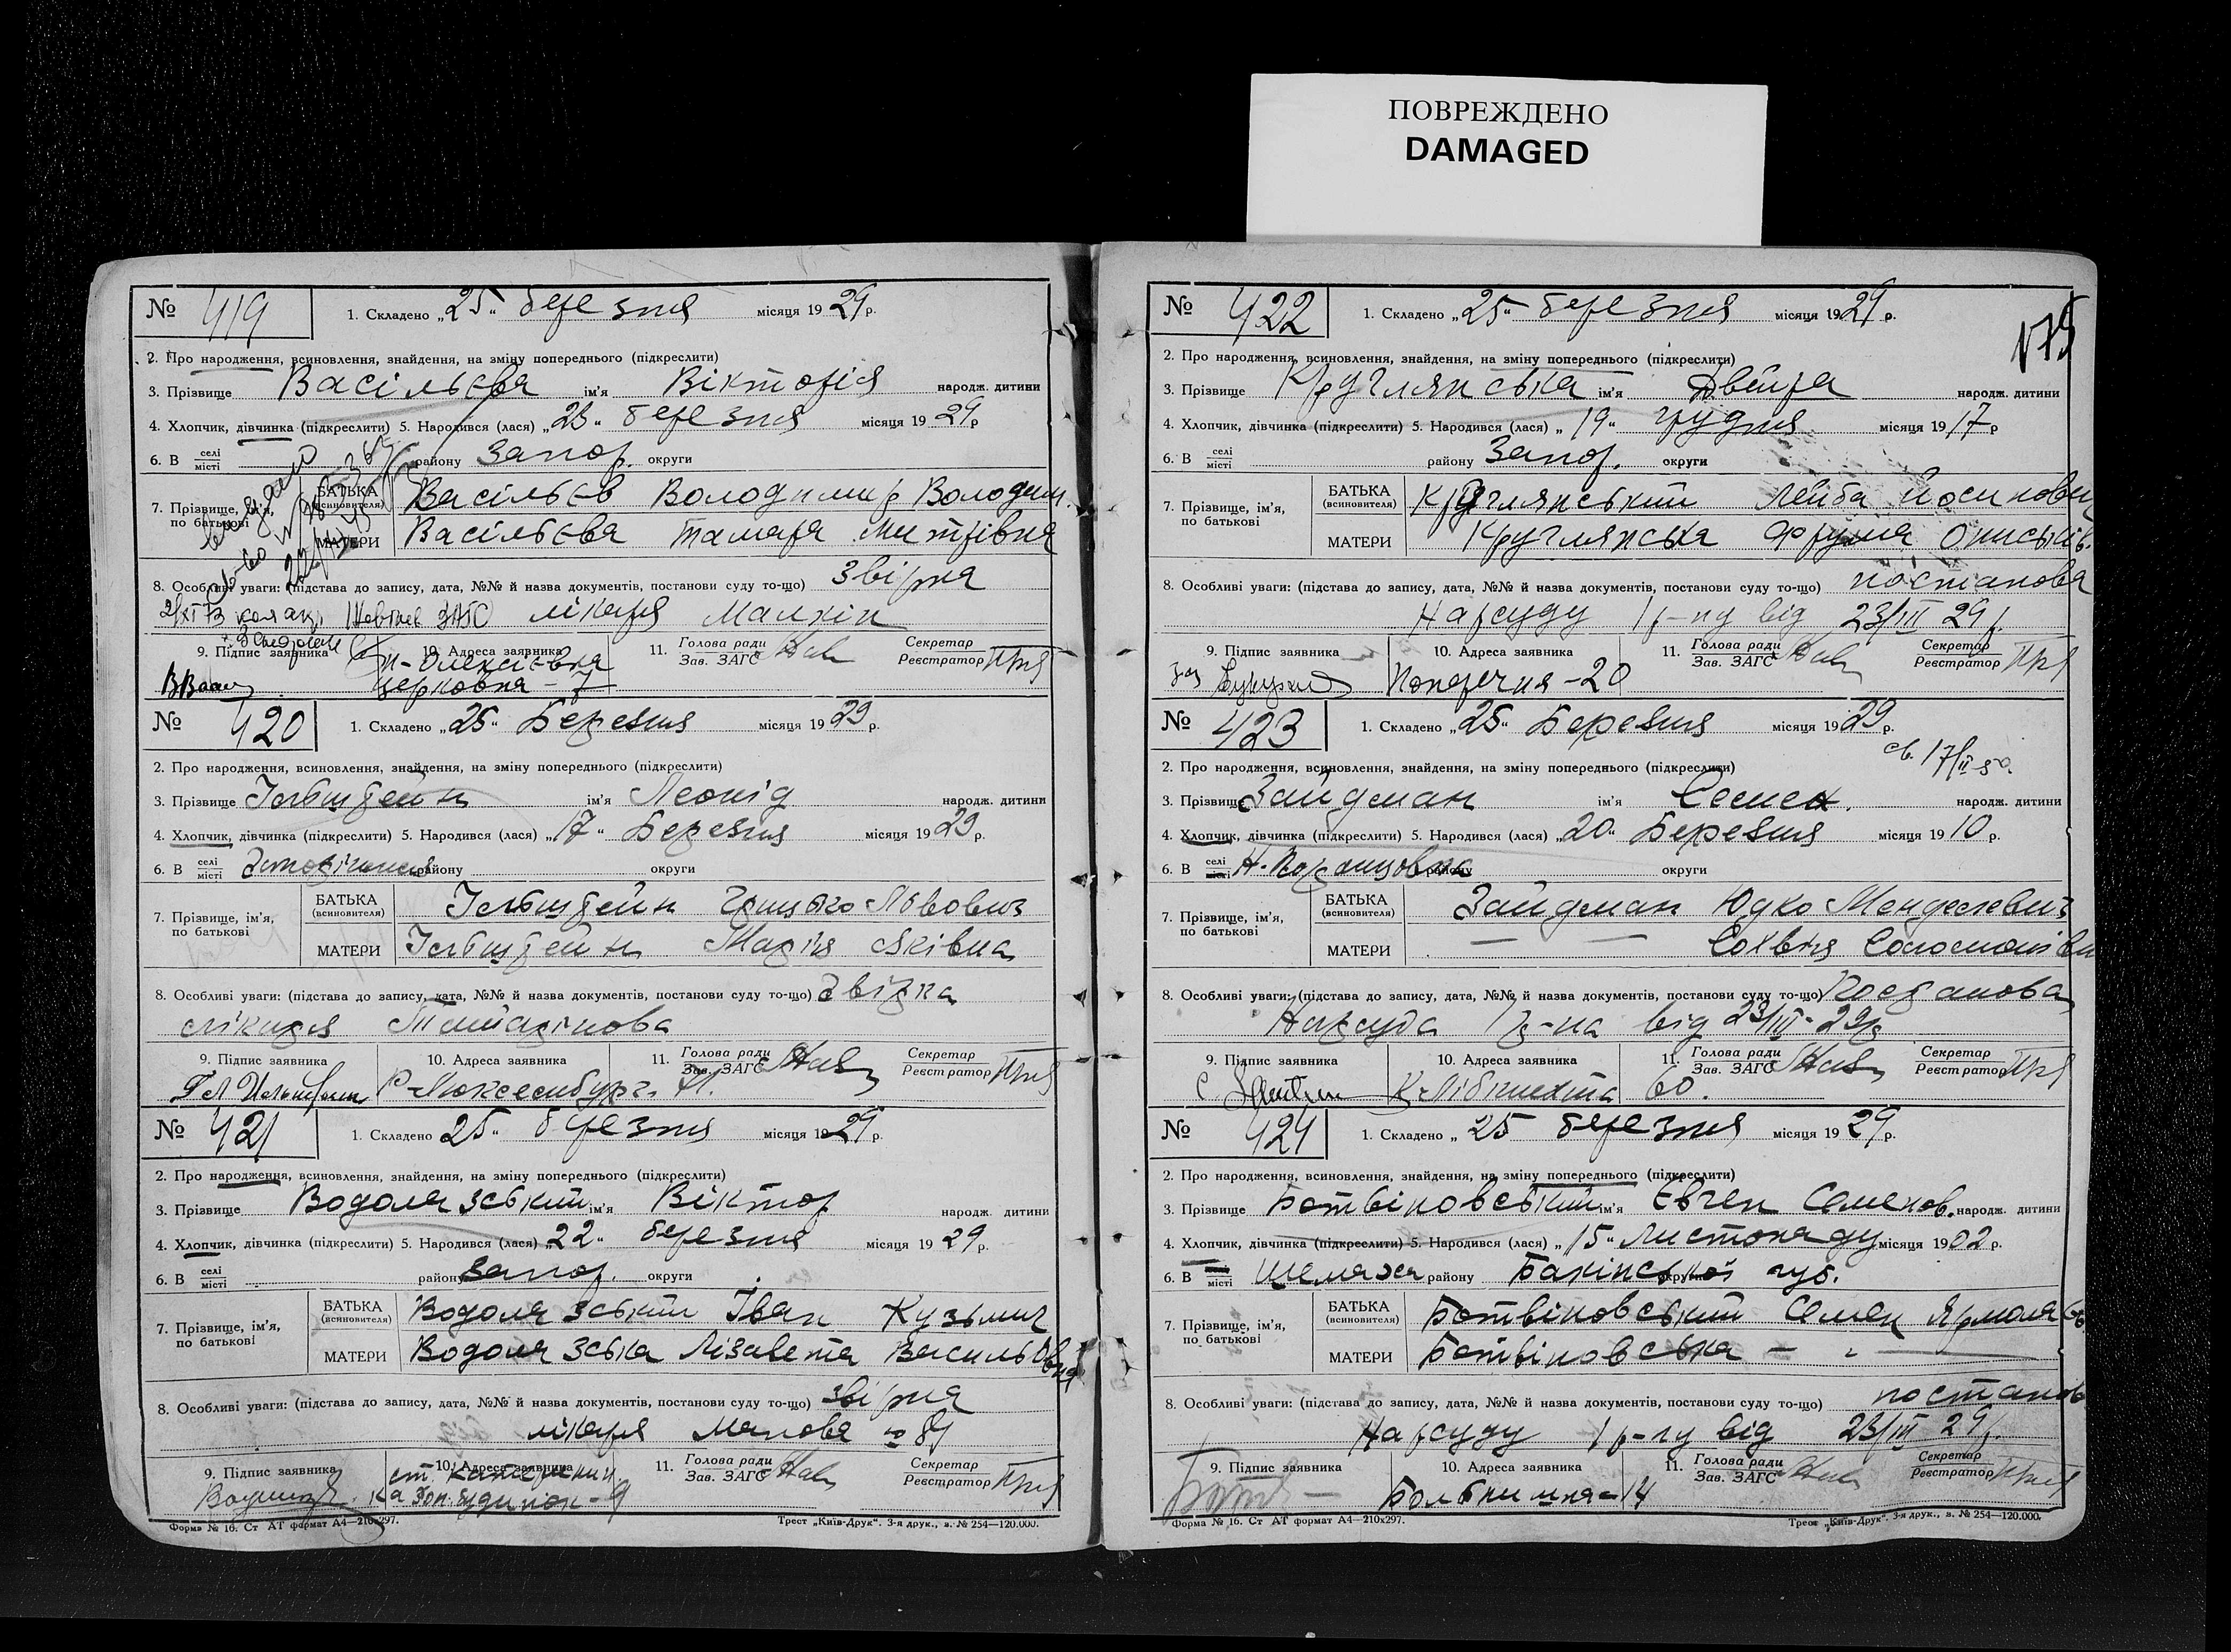 ПОВРЕЖДЕНО
DAMAGED
№ 419 1. Складено „25“ березня місяця 1929 р.
2. Про народження, всиновлення, знайдення, на зміну попереднього (підкреслити)
3. Прізвище Васільєва ім'я Вікторія народж. дитини
4. Хлопчик, дівчинка (підкреслити) 5. Народився (лася) „23“ березня місяця 1929 р
6. В селі місті району Запор. округи
7. Прізвище, ім'я, по батькові БАТЬКА (всиновителя) Васільєв Володимир Володим.
МАТЕРИ Васільєва Тамара Митрівна
8. Особливі уваги: (підстава до запису, дата, №№ й назва документів, постанови суду то-що) звірка
лікаря Малкін
9. Підпис заявника 10. Адреса заявника 11. Голова ради Зав. ЗАГС Секретар Реєстратор
п-Олексієвка
церковна-7
№ 420 1. Складено „25“ Березня місяця 1929 р.
2. Про народження, всиновлення, знайдення, на зміну попереднього (підкреслити)
3. Прізвище Ільбштейн ім'я Леонід народж. дитини
4. Хлопчик, дівчинка (підкреслити) 5. Народився (лася) „17“ Березня місяця 1929 р.
6. В селі місті Запоріжжя району округи
7. Прізвище, ім'я, по батькові БАТЬКА (всиновителя) Ільбштейн Грицько Львович
МАТЕРИ Ільбштейн Марія Яківна
8. Особливі уваги: (підстава до запису, дата, №№ й назва документів, постанови суду то-що) Звірка
лікаря
9. Підпис заявника 10. Адреса заявника 11. Голова ради Зав. ЗАГС Секретар Реєстратор
Р-Люксембург.
№ 421 1. Складено 25“ березня місяця 1929 р.
2. Про народження, всиновлення, знайдення, на зміну попереднього (підкреслити)
3. Прізвище Водолазський ім'я Віктор народж. дитини
4. Хлопчик, дівчинка (підкреслити) 5. Народився (лася) „22“ березня місяця 1929 р.
6. В селі місті району Запор. округи
7. Прізвище, ім'я, по батькові БАТЬКА (всиновителя) Водолазський Іван Кузьмич
МАТЕРИ Водолазська Лізавета Васильовна
8. Особливі уваги: (підстава до запису, дата, №№ й назва документів, постанови суду то-що) звірка
лікаря Манова № 89
9. Підпис заявника 10. Адреса заявника 11. Голова ради Зав. ЗАГС Секретар Реєстратор
Форма № 16. Ст АТ формат А4—210х297. Трест „Київ-Друк“. 3-я друк., з. № 254—120.000.
175
№ 422 1. Складено „25“ березня місяця 1929 р.
2. Про народження, всиновлення, знайдення, на зміну попереднього (підкреслити)
3. Прізвище Круглянська ім'я Двейра народж. дитини
4. Хлопчик, дівчинка (підкреслити) 5. Народився (лася) „19“ грудня місяця 1917 р
6. В селі місті району Запор. округи
7. Прізвище, ім'я, по батькові БАТЬКА (всиновителя) Круглянський Лейба Йосипович
МАТЕРИ Круглянська Фрума
8. Особливі уваги: (підстава до запису, дата, №№ й назва документів, постанови суду то-що) постанова
Нарсуду 1 р-ну від 23/III 29 р.
9. Підпис заявника 10. Адреса заявника 11. Голова ради Зав. ЗАГС Секретар Реєстратор
Поперечна-20
№ 423 1. Складено „25“ Березня місяця 1929 р.
2. Про народження, всиновлення, знайдення, на зміну попереднього (підкреслити)
3. Прізвище Зайдман ім'я Семен. народж. дитини
4. Хлопчик, дівчинка (підкреслити) 5. Народився (лася) „20“ Березня місяця 1910 р.
6. В селі місті району округи
7. Прізвище, ім'я, по батькові БАТЬКА (всиновителя) Зайдман Юдко Менделевич
МАТЕРИ — — Сохвія Соломонівна
8. Особливі уваги: (підстава до запису, дата, №№ й назва документів, постанови суду то-що) Постанова
Нарсуда 1 р-на від 23/III-29р
9. Підпис заявника 10. Адреса заявника 11. Голова ради Зав. ЗАГС Секретар Реєстратор
К-Лібкнехта 60.
№ 424 1. Складено „25 березня місяця 1929 р.
2. Про народження, всиновлення, знайдення, на зміну попереднього (підкреслити)
3. Прізвище Ботвіновський ім'я Євген Семенов. народж. дитини
4. Хлопчик, дівчинка (підкреслити) 5. Народився (лася) „15“ Листопаду місяця 1902 р.
6. В місті Шемаха району Бакінської округи губ.
7. Прізвище, ім'я, по батькові БАТЬКА (всиновителя) Ботвіновський Семен
МАТЕРИ Ботвіновська — " —
8. Особливі уваги: (підстава до запису, дата, №№ й назва документів, постанови суду то-що) постанов
Нарсуду 1 р-ну від 23/III 29 р.
9. Підпис заявника 10. Адреса заявника 11. Голова ради Зав. ЗАГС Секретар Реєстратор
14
Форма № 16. Ст АТ формат А4—210х297. Трест „Київ-Друк“. 3-я друк., з. № 254—120.000.